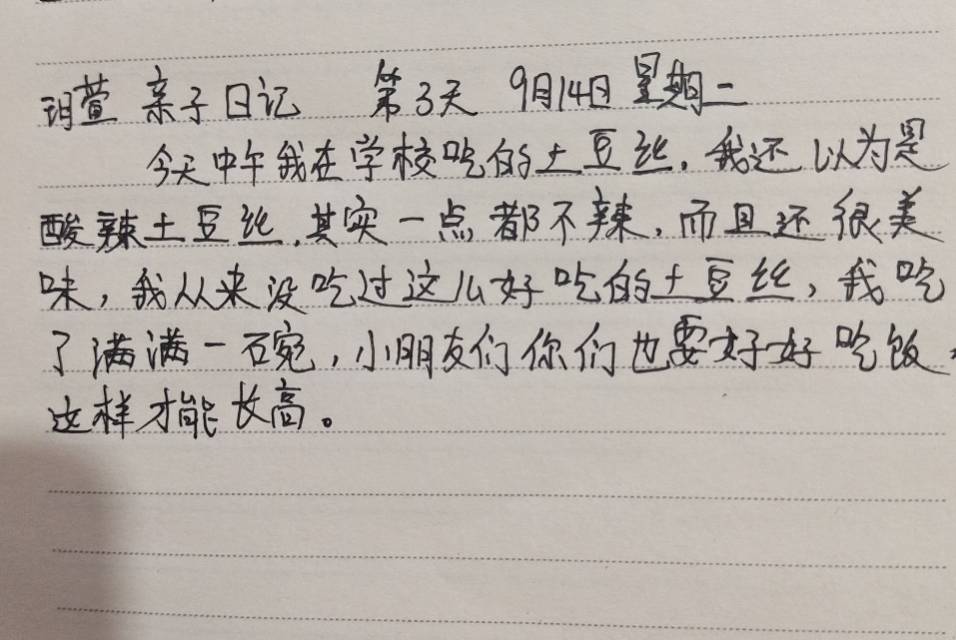 玥萱 亲子日记 第3天 9月14日 星期二
今天中午我在学校吃的土豆丝，我还以为是
酸辣土豆丝，其实一点都不辣，而且还很美
味，我从来没吃过这么好吃的土豆丝，我吃
了满满一碗，小朋友们你们也要好好吃饭，
这样才能长高。